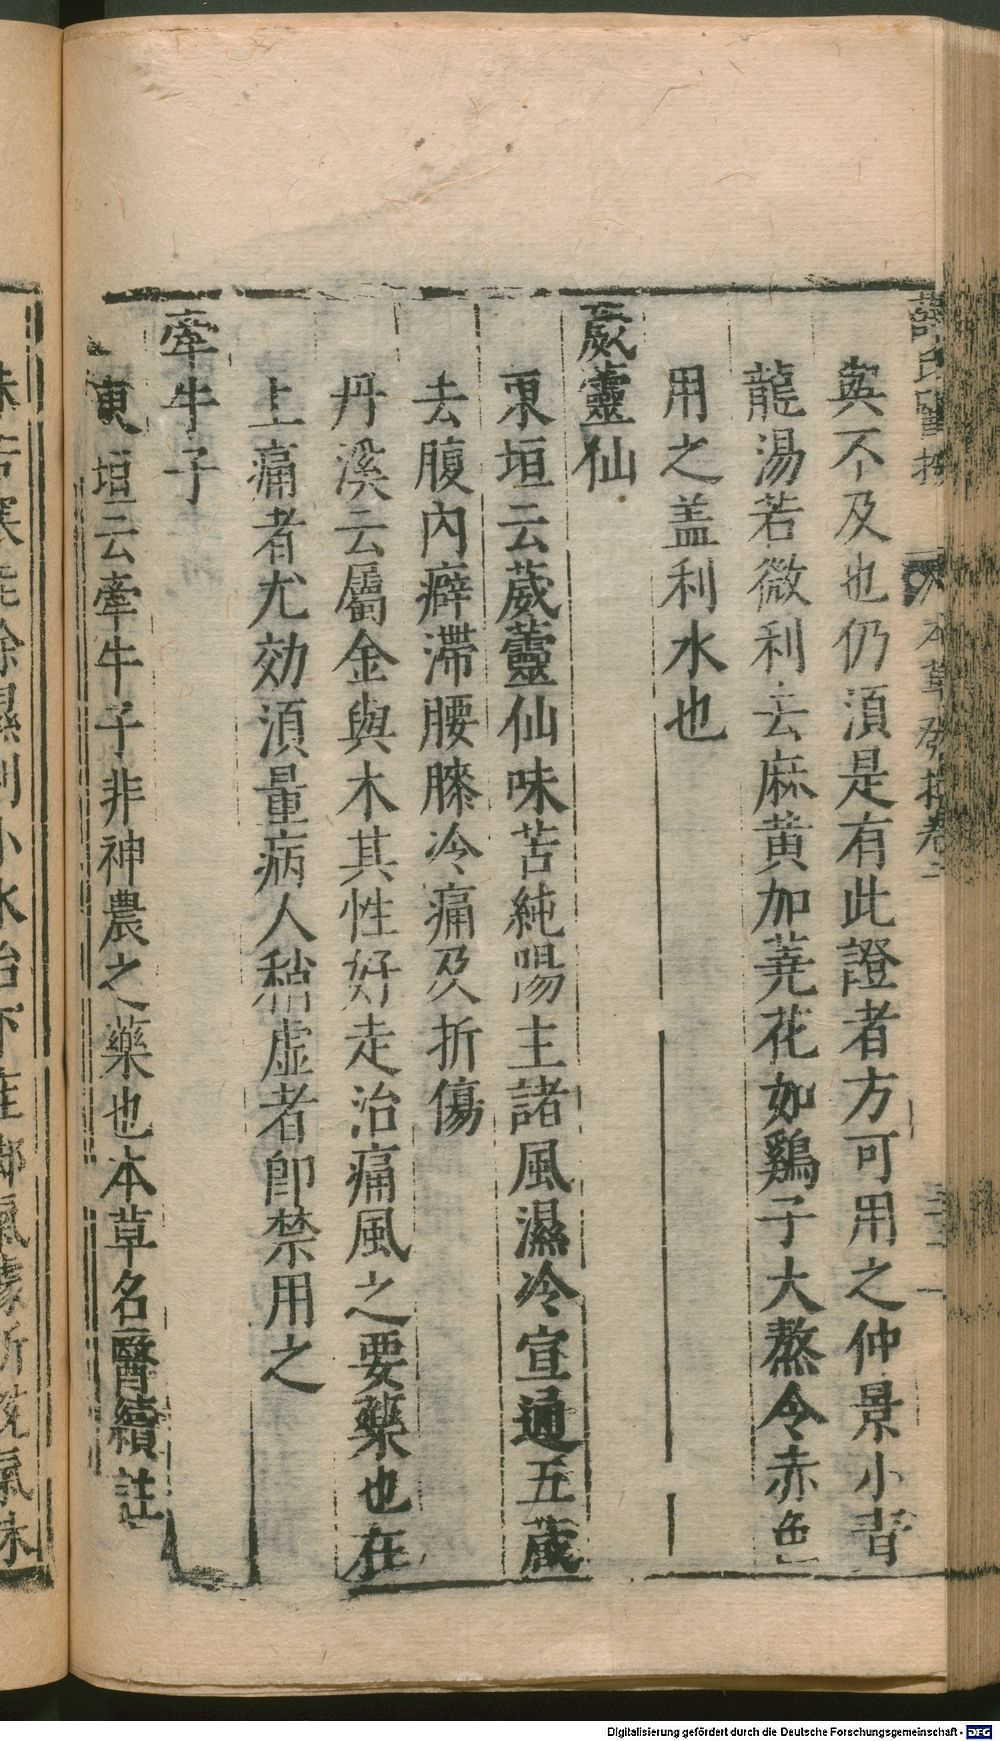 薛氏醫按
本草發揮卷二
三十一
與不及也仍須是有此證者方可用之仲景小青
龍湯若微利去麻黃加蕘花如鷄子大熬令赤色
用之盖利水也
威靈仙
東垣云葳靈仙味苦純陽主諸風濕冷宣通五藏
去腹內癖滯腰膝冷痛及折傷
丹溪云屬金與木其性好走治痛風之要藥也在
上痛者尤効須量病人稍虛者卽禁用之
牽牛子
東垣云牽牛子非神農之藥也本草名醫續註
味苦寒能除濕利小水治下在鄉氣據所說氣味
Digitalisierung gefördert durch die Deutsche Forschungsgemeinschaft - DFG